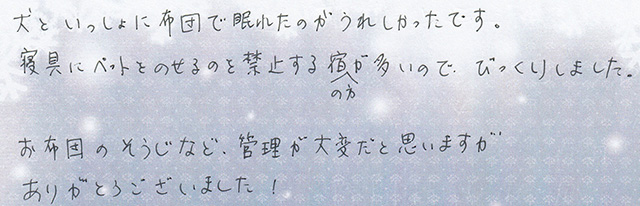 犬といっしょに布団で眠れたのがうれしかったです。
寝具にペットをのせるのを禁止する宿が多いので、びっくりしました。
の方
お布団のそうじなど、管理が大変だと思いますが
ありがとうございました！